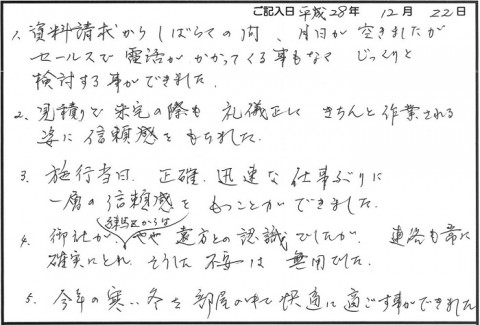 ご記入日 平成28年 12月 22日
1. 資料請求からしばらくの間、月日が空きましたが
セールスで電話がかかってくる事もなく じっくりと
検討する事ができました。
2. 見積りで来宅の際も 礼儀正しく きちんと作業される
姿に信頼感をもちれた。
3. 施行当日、正確、迅速な仕事ぶりに
一層の信頼感を もつことができました。
4. 御社が、練馬区からは やや遠方との認識でしたが、連絡も常に
確実にとれ、そうした不安は無用でした。
5. 今年の寒い冬を部屋の中で快適に過ごす事ができれた